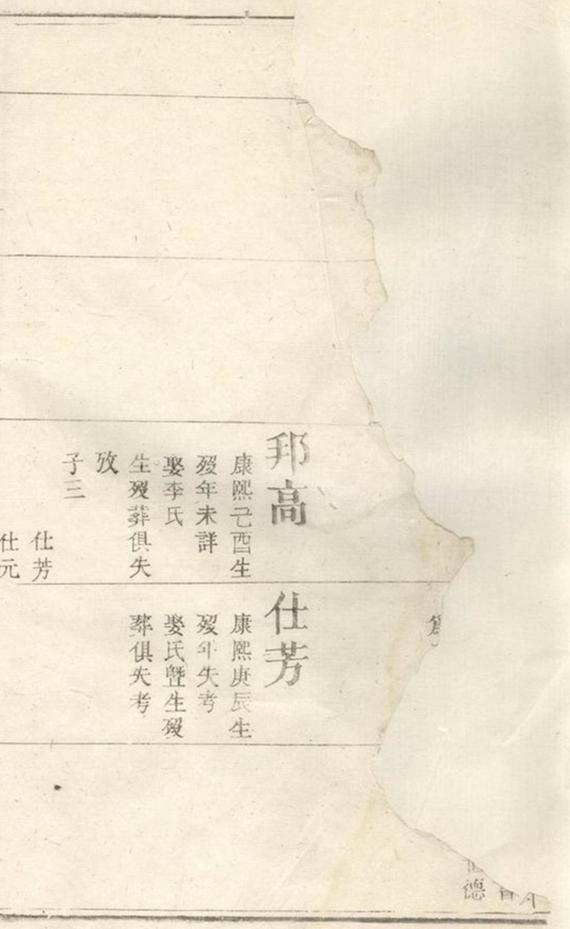 邦高
康熙己酉生
歿年未詳
娶李氏
生歿葬俱失
攷
子三
仕芳
仕元
仕芳
康熙庚辰生
歿年失考
娶氏曁生歿
葬俱失考
德